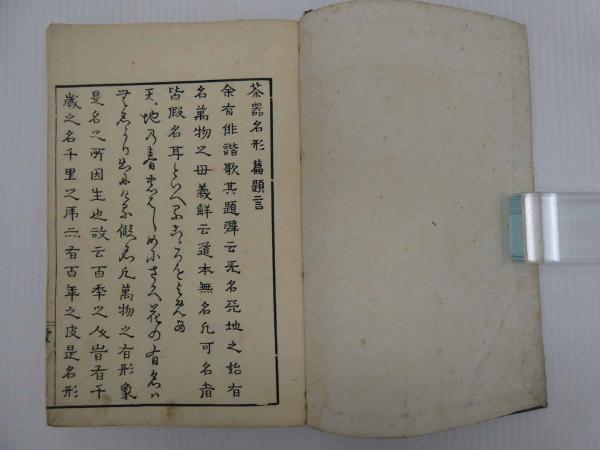 茶器名形篇題言
余有俳諧歌其題辞云无名天地之始有
名萬物之母義鮮云道本無名凡可名者
皆假名耳といへるこゝろをよみたる
天地の春のはしめ小さくへ花の有名は
名よりいふ假名凡萬物之有形象
是名之所因生也故云百季之人皆有千
歳之名千里之席亦有百年之皮是名形